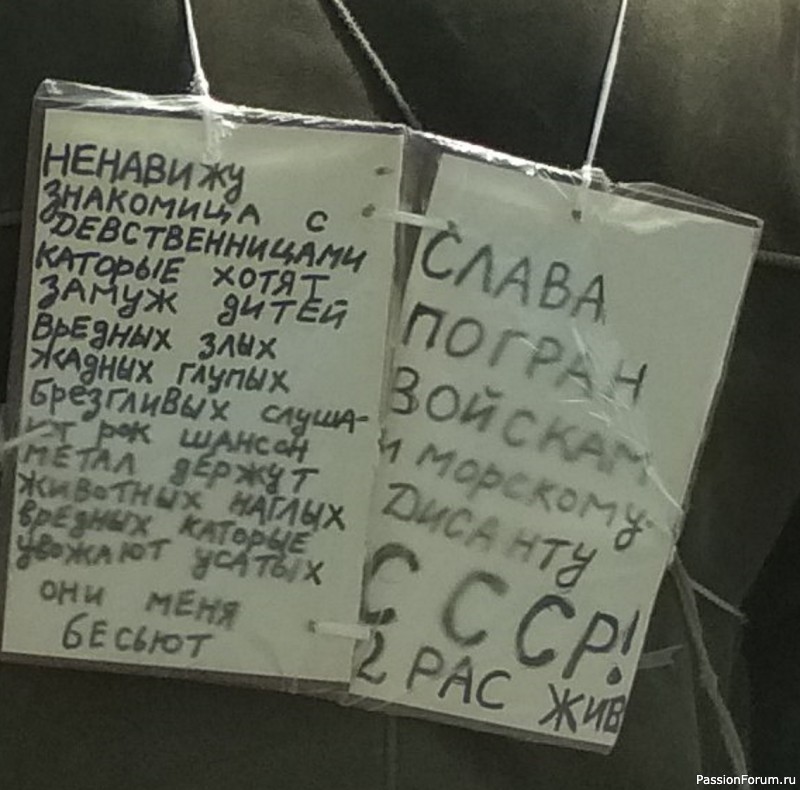 НЕНАВИЖУ
ЗНАКОМИЦА С
ДЕВСТВЕННИЦАМИ
КАТОРЫЕ ХОТЯТ
ЗАМУЖ ДИТЕЙ
ВРЕДНЫХ ЗЛЫХ
ЖАДНЫХ ГЛУПЫХ
БРЕЗГЛИВЫХ СЛУША-
ЮТ РОК ШАНСОН
МЕТАЛ ДЕРЖУТ
ЖИВОТНЫХ НАГЛЫХ
ВРЕДНЫХ КАТОРЫЕ
УВОЖАЮТ УСАТЫХ
ОНИ МЕНЯ
БЕСЬЮТ
СЛАВА
ПОГРАН
ВОЙСКАМ
И МОРСКОМУ
ДИСАНТУ
СССР!
2 РАС ЖИВ
PassionForum.ru